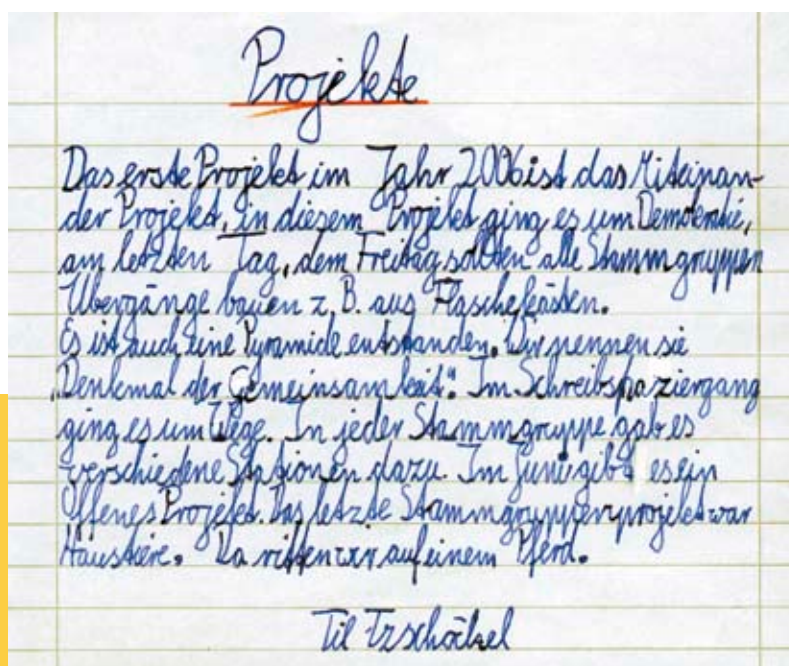 Projekte
Das erste Projekt im Jahr 2006 ist das Miteinan-
der Projekt, in diesem Projekt ging es um Demokratie,
am letzten Tag, dem Freitag sollten alle Stammgruppen
Übergänge bauen z. B. aus Flaschekästen.
Es ist auch eine Pyramide entstanden. Wir nennen sie
„Denkmal der Gemeinsamkeit“. Im Schreibspaziergang
ging es um Wege. In jeder Stammgruppe gab es
verschiedene Stationen dazu. Im Juni gibt es ein
Offenes Projekt. Das letzte Stammgruppenprojekt war
Haustiere. Da ritten wir auf einem Pferd.
Til